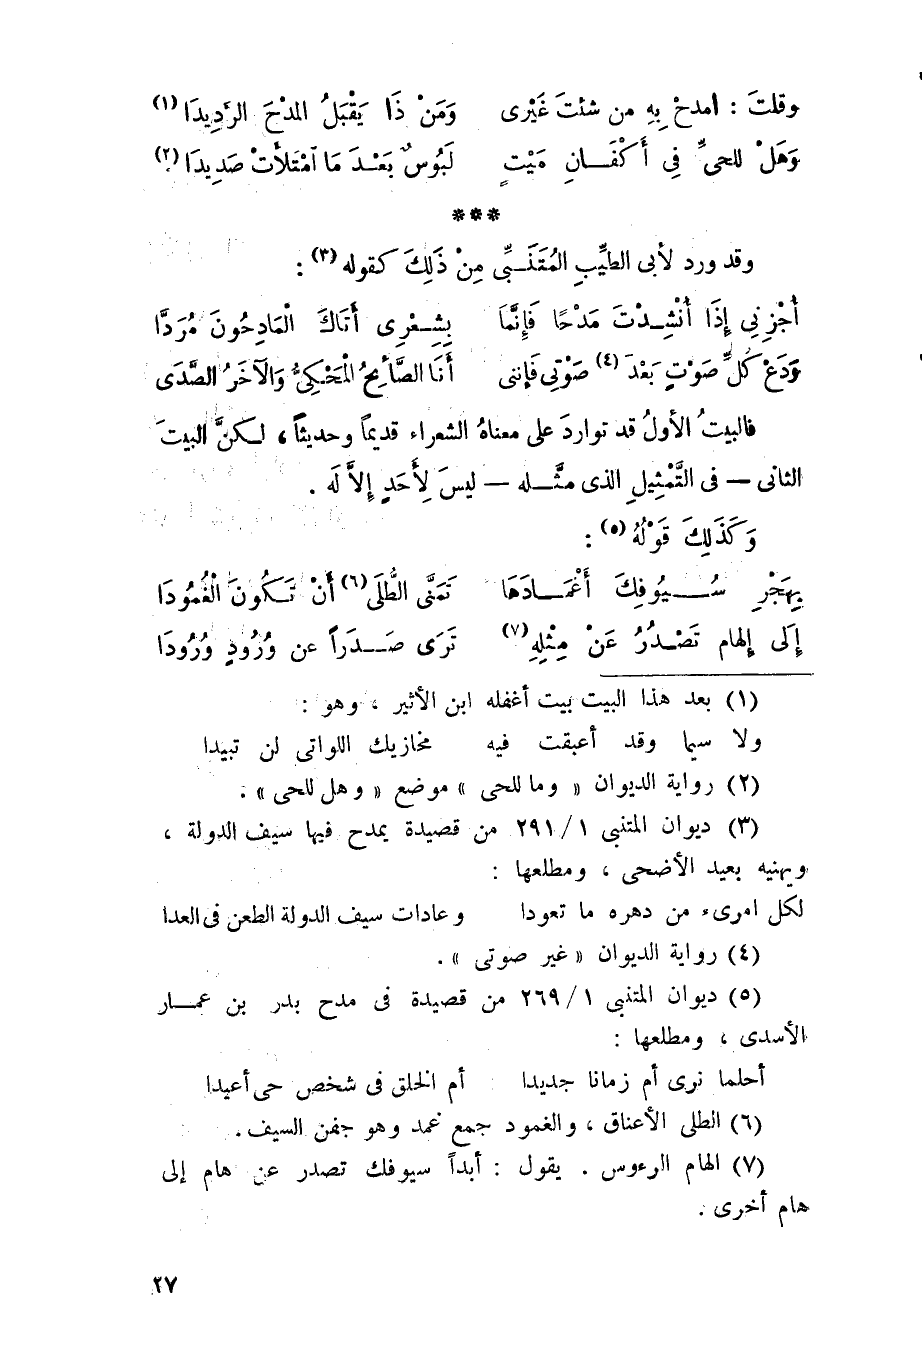 وقلتَ : امدحْ بِهِ من شئتَ غَيْرى وَمَنْ ذَا يَقْبَلُ المدْحَ الرَّدِيدَا (١)
وَهَلْ للحىِّ فِى أَكْفَـــانِ مَيْتٍ لَبُوسٌ بَعْـدَ مَا آمْتَلَأَتْ صَدِيدَا (٢)
***
وقد ورد لأبى الطيِّبِ المُتَنَـبِّى مِنْ ذَلِكَ كقوله (٣) :
أَجْزِنِي إِذَا أُنْشِـدْتَ مَدْحًا فَإِنَّمَا بِشِـعْرِى أَتَاكَ الْمَادِحُونَ مُرَدَّا
وَدَعْ كُلَّ صَوْتٍ بَعْدَ (٤) صَوْتِى فَإننى أَنَا الصَّائِحُ الْمَحْكِىُّ وَالآخَرُ الصَّدَى
فالبيتُ الأولُ قد تواردَ على معناهُ الشعراء قديماً وحديثاً ، لـكنَّ البيتَ
الثانى — فى التَّمْثِيلِ الذى مثَّـــله — ليسَ لِأَحَدٍ إِلاَّ لَه .
وَكَذَلِكَ قَوْلُهُ (٥) :
بِهَجْرِ سُــــيُوفِكَ أَغْمَـادَهَا تَمَنَّى الطُّلَى (٦) أَنْ تَـكُونَ الْغُمُودَا
إِلَى الهَامِ تَصْـدُرُ عَنْ مِثْلِهِ (٧) تَرَى صَـــدَراً عن وُرُودٍ وُرُودَا
(١) بعد هذا البيت بيت أغفله ابن الأثير ، وهو :
ولا سيما وقد أعبقت فيه مخازيك اللواتى لن تبيدا
(٢) رواية الديوان « وما للحى » موضع « وهل للحى » .
(٣) ديوان المتنبى ١ / ٢٩١ من قصيدة يمدح فيها سيف الدولة ،
ويهنيه بعيد الأضحى ، ومطلعها :
لكل امرىء من دهره ما تعودا وعادات سيف الدولة الطعن فى العدا
(٤) رواية الديوان « غير صوتى » .
(٥) ديوان المتنبى ١ / ٢٦٩ من قصيدة فى مدح بدر بن عمــار
الأسدى ، ومطلعها :
أحلما نرى أم زمانا جديدا أم الخلق فى شخص حى أعيدا
(٦) الطلى الأعناق ، والغمود جمع غمد وهو جفن السيف .
(٧) الهام الرءوس . يقول : أبداً سيوفك تصدر عن هام إلى
هام أخرى .
٢٧